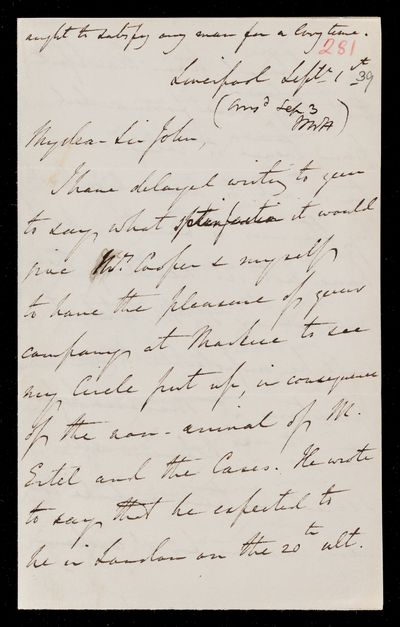 ought to satisfy any man for a long time.
281
Liverpool Sept. 1st 39
(Ansd Sep 3
My dear Sir John,
I have delayed writing to you
to say what satisfaction it would
give Mrs. Cooper & myself
to have the pleasure of your
company at Markree to see
my Circle put up, in consequence
of the non-arrival of M.
Ertel and the Cases. He wrote
to say that he expected to
be in London on the 20th ult.